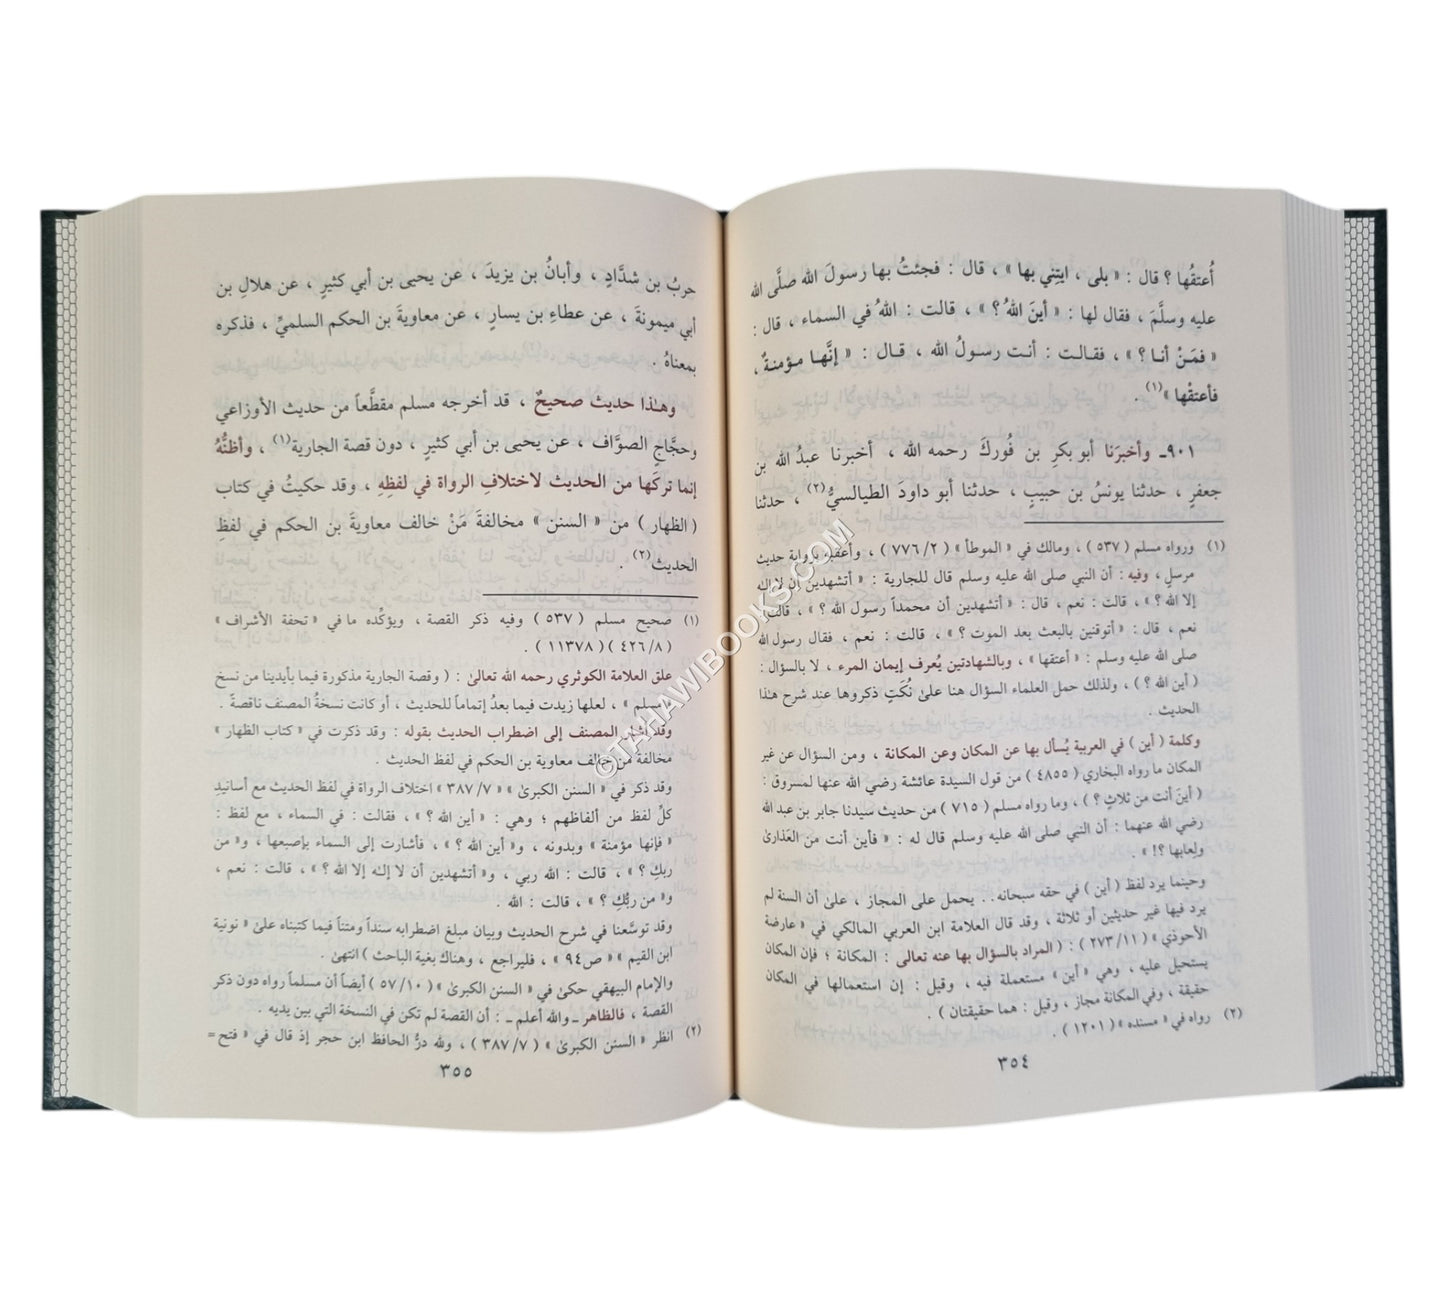 أُعتقُها ؟ قال : « بلى ، ايتِني بها » ، قال : فجئتُ بها رسولَ الله صلَّى الله
عليه وسلَّمَ ، فقال لها : « أينَ اللهُ ؟ » ، قالت : اللهُ في السماء ، قال :
« فمَنْ أنا ؟ » ، فقالت : أنت رسولُ الله ، قال : « إنَّها مؤمنةٌ ،
فأعتقْها »(١) .
٩٠١ـ وأخبرَنا أبو بكرِ بن فُوركَ رحمه الله ، أخبرنا عبدُ الله بن
جعفرٍ ، حدثنا يونسُ بن حبيبٍ ، حدثنا أبو داودَ الطيالسيُّ(٢) ، حدثنا
(١) ورواه مسلم ( ٥٣٧ ) ، ومالك في « الموطأ » ( ٢/ ٧٧٦ ) ، وأعقبه برواية حديث
مرسل ، وفيه : أن النبي صلى الله عليه وسلم قال للجارية : « أتشهدين أن لا إلـٰه
إلا الله ؟ » ، قالت : نعم ، قال : « أتشهدين أن محمداً رسول الله ؟ » ، قالت :
نعم ، قال : « أتوقنين بالبعث بعد الموت ؟ » ، قالت : نعم ، فقال رسول الله
صلى الله عليه وسلم : « أعتقها » ، وبالشهادتين يُعرف إيمان المرء ، لا بالسؤال :
( أين الله ؟ ) ، ولذلك حمل العلماء السؤال هنا علىٰ نُكَتٍ ذكروها عند شرح هـٰذا
الحديث .
وكلمة ( أين ) في العربية يُسأل بها عن المكان وعن المكانة ، ومن السؤال عن غير
المكان ما رواه البخاري ( ٤٨٥٥ ) من قول السيدة عائشة رضي الله عنها لمسروق :
( أينَ أنت من ثلاثٍ ؟ ) ، وما رواه مسلم ( ٧١٥ ) من حديث سيدنا جابر بن عبد الله
رضي الله عنهما : أن النبي صلى الله عليه وسلم قال له : « فأين أنت من العَذارىٰ
ولعابها ؟! » .
وحينما يرد لفظ ( أين ) في حقه سبحانه .. يحمل على المجاز ، علىٰ أن السنة لم
يرد فيها غير حديثين أو ثلاثة ، وقد قال العلامة ابن العربي المالكي في « عارضة
الأحوذي » ( ١١/ ٢٧٣ ) : ( المراد بالسؤال بها عنه تعالى : المكانة ؛ فإن المكان
يستحيل عليه ، وهي « أين » مستعملة فيه ، وقيل : إن استعمالها في المكان
حقيقة ، وفي المكانة مجاز ، وقيل : هما حقيقتان ) .
(٢) رواه في « مسنده » ( ١٢٠١ ) .
٣٥٤
حربُ بن شدَّادٍ ، وأبانُ بن يزيدَ ، عن يحيى بن أبي كثيرٍ ، عن هلالِ بن
أبي ميمونةَ ، عن عطاءِ بن يسارٍ ، عن معاويةَ بن الحكم السلميِّ ، فذكره
بمعناهُ .
وهـٰذا حديث صحيحٌ ، قد أخرجه مسلم مقطَّعاً من حديث الأوزاعي
وحجَّاجٍ الصوَّاف ، عن يحيى بن أبي كثيرٍ ، دون قصة الجارية(١) ، وأظنُّهُ
إنما تركَها من الحديث لاختلافِ الرواة في لفظِهِ ، وقد حكيتُ في كتاب
( الظهار ) من « السنن » مخالفةَ مَنْ خالف معاويةَ بن الحكم في لفظِ
الحديث(٢) .
(١) صحيح مسلم ( ٥٣٧ ) وفيه ذكر القصة ، ويؤكِّده ما في « تحفة الأشراف »
( ٨/ ٤٢٦ ) ( ١١٣٧٨ ) .
علق العلامة الكوثري رحمه الله تعالىٰ : ( وقصة الجارية مذكورة فيما بأيدينا من نسخ
« مسلم » ، لعلها زيدت فيما بعدُ إتماماً للحديث ، أو كانت نسخةُ المصنف ناقصةً .
وقد أشار المصنف إلى اضطراب الحديث بقوله : وقد ذكرت في « كتاب الظهار »
مخالفة من خالف معاوية بن الحكم في لفظ الحديث .
وقد ذكر في « السنن الكبرىٰ » « ٧/ ٣٨٧ » اختلاف الرواة في لفظ الحديث مع أسانيدِ
كلِّ لفظ من ألفاظهم ؛ وهي : « أين الله ؟ » ، فقالت : في السماء ، مع لفظ :
« فإنها مؤمنة » وبدونه ، و« أين الله ؟ » ، فأشارت إلى السماء بإصبعها ، و« من
ربكِ ؟ » ، قالت : الله ربي ، و« أتشهدين أن لا إلـٰه إلا الله ؟ » ، قالت : نعم ،
و« من ربُّكِ ؟ » ، قالت : الله .
وقد توسَّعنا في شرح الحديث وبيان مبلغ اضطرابه سنداً ومتناً فيما كتبناه علىٰ « نونية
ابن القيم » « ص٩٤ » ، فليراجع ، وهناك بغية الباحث ) انتهىٰ .
والإمام البيهقي حكىٰ في « السنن الكبرىٰ » ( ١٠/ ٥٧ ) أيضاً أن مسلماً رواه دون ذكر
القصة ، فالظاهر ـ والله أعلم ـ : أن القصة لم تكن في النسخة التي بين يديه .
(٢) انظر « السنن الكبرىٰ » ( ٧/ ٣٨٧ ) ، ولله درُّ الحافظ ابن حجر إذ قال في « فتح =
٣٥٥
©TAHAWIBOOKS.COM